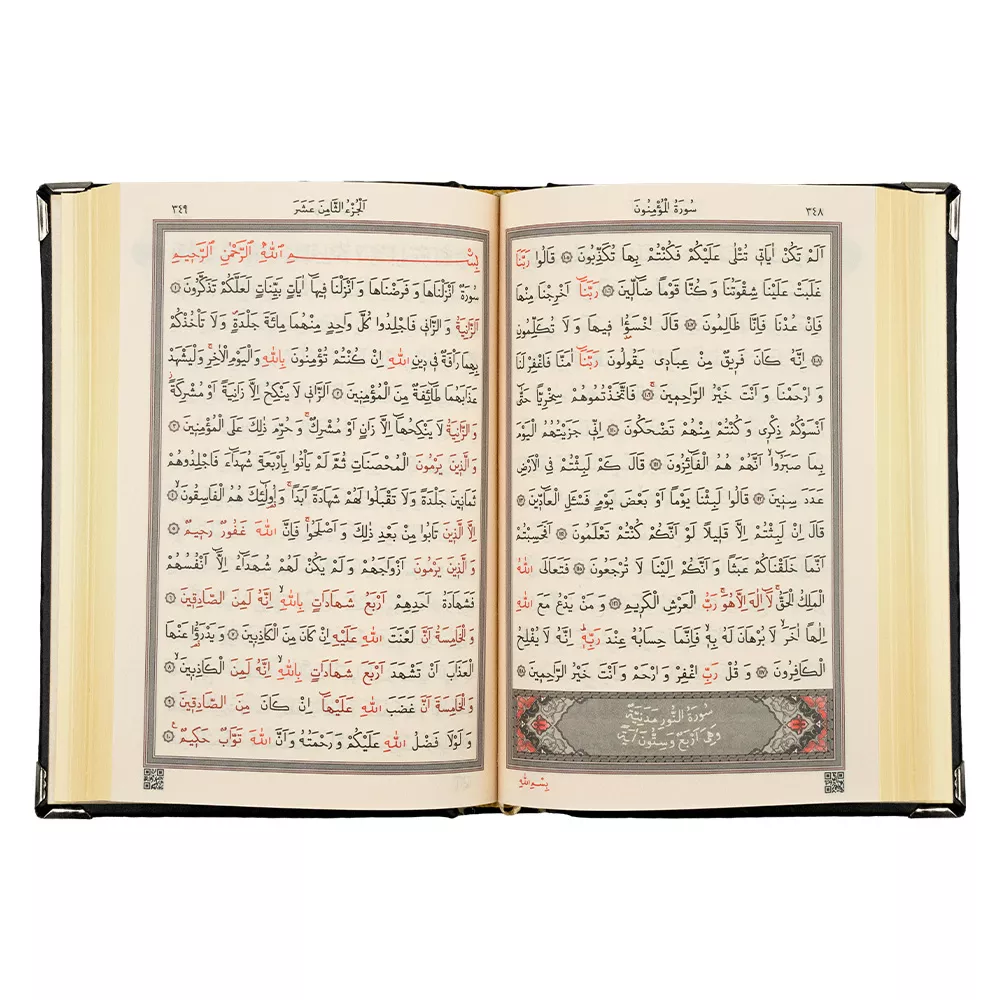 ٣٤٨
سُورَةُ الْمُؤْمِنُونَ
اَلَمْ تَكُنْ اٰيَاتٖى تُتْلٰى عَلَيْكُمْ فَكُنْتُمْ بِهَا تُكَذِّبُونَ ﴿١٠٥﴾ قَالُوا رَبَّنَا
غَلَبَتْ عَلَيْنَا شِقْوَتُنَا وَكُنَّا قَوْمًا ضَٓالّٖينَ ﴿١٠٦﴾ رَبَّنَٓا اَخْرِجْنَا مِنْهَا
فَاِنْ عُدْنَا فَاِنَّا ظَالِمُونَ ﴿١٠٧﴾ قَالَ اخْسَؤُ۫ا فٖيهَا وَلَا تُكَلِّمُونِ
﴿١٠٨﴾ اِنَّهُ كَانَ فَرٖيقٌ مِنْ عِبَادٖى يَقُولُونَ رَبَّنَٓا اٰمَنَّا فَاغْفِرْ لَنَا
وَارْحَمْنَا وَاَنْتَ خَيْرُ الرَّاحِمٖينَ ﴿١٠٩﴾ فَاتَّخَذْتُمُوهُمْ سِخْرِيًّا حَتّٰٓى
اَنْسَوْكُمْ ذِكْرٖى وَكُنْتُمْ مِنْهُمْ تَضْحَكُونَ ﴿١١٠﴾ اِنّٖى جَزَيْتُهُمُ الْيَوْمَ
بِمَا صَبَرُٓوا اَنَّهُمْ هُمُ الْفَٓائِزُونَ ﴿١١١﴾ قَالَ كَمْ لَبِثْتُمْ فِى الْاَرْضِ
عَدَدَ سِنٖينَ ﴿١١٢﴾ قَالُوا لَبِثْنَا يَوْمًا اَوْ بَعْضَ يَوْمٍ فَسْـَٔلِ الْعَٓادّٖينَ ﴿١١٣﴾
قَالَ اِنْ لَبِثْتُمْ اِلَّا قَلٖيلًا لَوْ اَنَّكُمْ كُنْتُمْ تَعْلَمُونَ ﴿١١٤﴾ اَفَحَسِبْتُمْ
اَنَّمَا خَلَقْنَاكُمْ عَبَثًا وَاَنَّكُمْ اِلَيْنَا لَا تُرْجَعُونَ ﴿١١٥﴾ فَتَعَالَى اللّٰهُ
الْمَلِكُ الْحَقُّۚ لَٓا اِلٰهَ اِلَّا هُوَۚ رَبُّ الْعَرْشِ الْكَرٖيمِ ﴿١١٦﴾ وَمَنْ يَدْعُ مَعَ اللّٰهِ
اِلٰهًا اٰخَرَۙ لَا بُرْهَانَ لَهُ بِهٖۙ فَاِنَّمَا حِسَابُهُ عِنْدَ رَبِّهٖؕ اِنَّهُ لَا يُفْلِحُ
الْكَافِرُونَ ﴿١١٧﴾ وَقُلْ رَبِّ اغْفِرْ وَارْحَمْ وَاَنْتَ خَيْرُ الرَّاحِمٖينَ ﴿١١٨﴾
سُورَةُ النُّورِ مَدَنِيَّةٌ
وَهِىَ اَرْبَعٌ وَسِتُّونَ اٰيَةً
بِسْمِ اللّٰهِ
اَلْجُزْءُ الثَّامِنَ عَشَرَ
٣٤٩
بِسْمِ اللّٰهِ الرَّحْمٰنِ الرَّحٖيمِ
سُورَةٌ اَنْزَلْنَاهَا وَفَرَضْنَاهَا وَاَنْزَلْنَا فٖيهَٓا اٰيَاتٍ بَيِّنَاتٍ لَعَلَّكُمْ تَذَكَّرُونَ ﴿١﴾
اَلزَّانِيَةُ وَالزَّانٖى فَاجْلِدُوا كُلَّ وَاحِدٍ مِنْهُمَا مِائَةَ جَلْدَةٍࣕ وَلَا تَأْخُذْكُمْ
بِهِمَا رَأْفَةٌ فٖى دٖينِ اللّٰهِ اِنْ كُنْتُمْ تُؤْمِنُونَ بِاللّٰهِ وَالْيَوْمِ الْاٰخِرِۚ وَلْيَشْهَدْ
عَذَابَهُمَا طَٓائِفَةٌ مِنَ الْمُؤْمِنٖينَ ﴿٢﴾ اَلزَّانٖى لَا يَنْكِحُ اِلَّا زَانِيَةً اَوْ مُشْرِكَةًؗ
وَالزَّانِيَةُ لَا يَنْكِحُهَٓا اِلَّا زَانٍ اَوْ مُشْرِكٌۚ وَحُرِّمَ ذٰلِكَ عَلَى الْمُؤْمِنٖينَ ﴿٣﴾
وَالَّذٖينَ يَرْمُونَ الْمُحْصَنَاتِ ثُمَّ لَمْ يَأْتُوا بِاَرْبَعَةِ شُهَدَٓاءَ فَاجْلِدُوهُمْ
ثَمَانٖينَ جَلْدَةً وَلَا تَقْبَلُوا لَهُمْ شَهَادَةً اَبَدًاۚ وَاُو۬لٰٓئِكَ هُمُ الْفَاسِقُونَ ﴿٤﴾
اِلَّا الَّذٖينَ تَابُوا مِنْ بَعْدِ ذٰلِكَ وَاَصْلَحُواۚ فَاِنَّ اللّٰهَ غَفُورٌ رَحٖيمٌ ﴿٥﴾
وَالَّذٖينَ يَرْمُونَ اَزْوَاجَهُمْ وَلَمْ يَكُنْ لَهُمْ شُهَدَٓاءُ اِلَّٓا اَنْفُسُهُمْ
فَشَهَادَةُ اَحَدِهِمْ اَرْبَعُ شَهَادَاتٍ بِاللّٰهِۙ اِنَّهُ لَمِنَ الصَّادِقٖينَ ﴿٦﴾
وَالْخَامِسَةُ اَنَّ لَعْنَتَ اللّٰهِ عَلَيْهِ اِنْ كَانَ مِنَ الْكَاذِبٖينَ ﴿٧﴾ وَيَدْرَؤُ۬ا عَنْهَا
الْعَذَابَ اَنْ تَشْهَدَ اَرْبَعَ شَهَادَاتٍ بِاللّٰهِۙ اِنَّهُ لَمِنَ الْكَاذِبٖينَۙ ﴿٨﴾
وَالْخَامِسَةَ اَنَّ غَضَبَ اللّٰهِ عَلَيْهَٓا اِنْ كَانَ مِنَ الصَّادِقٖينَ ﴿٩﴾
وَلَوْلَا فَضْلُ اللّٰهِ عَلَيْكُمْ وَرَحْمَتُهُ وَاَنَّ اللّٰهَ تَوَّابٌ حَكٖيمٌ ﴿١٠﴾